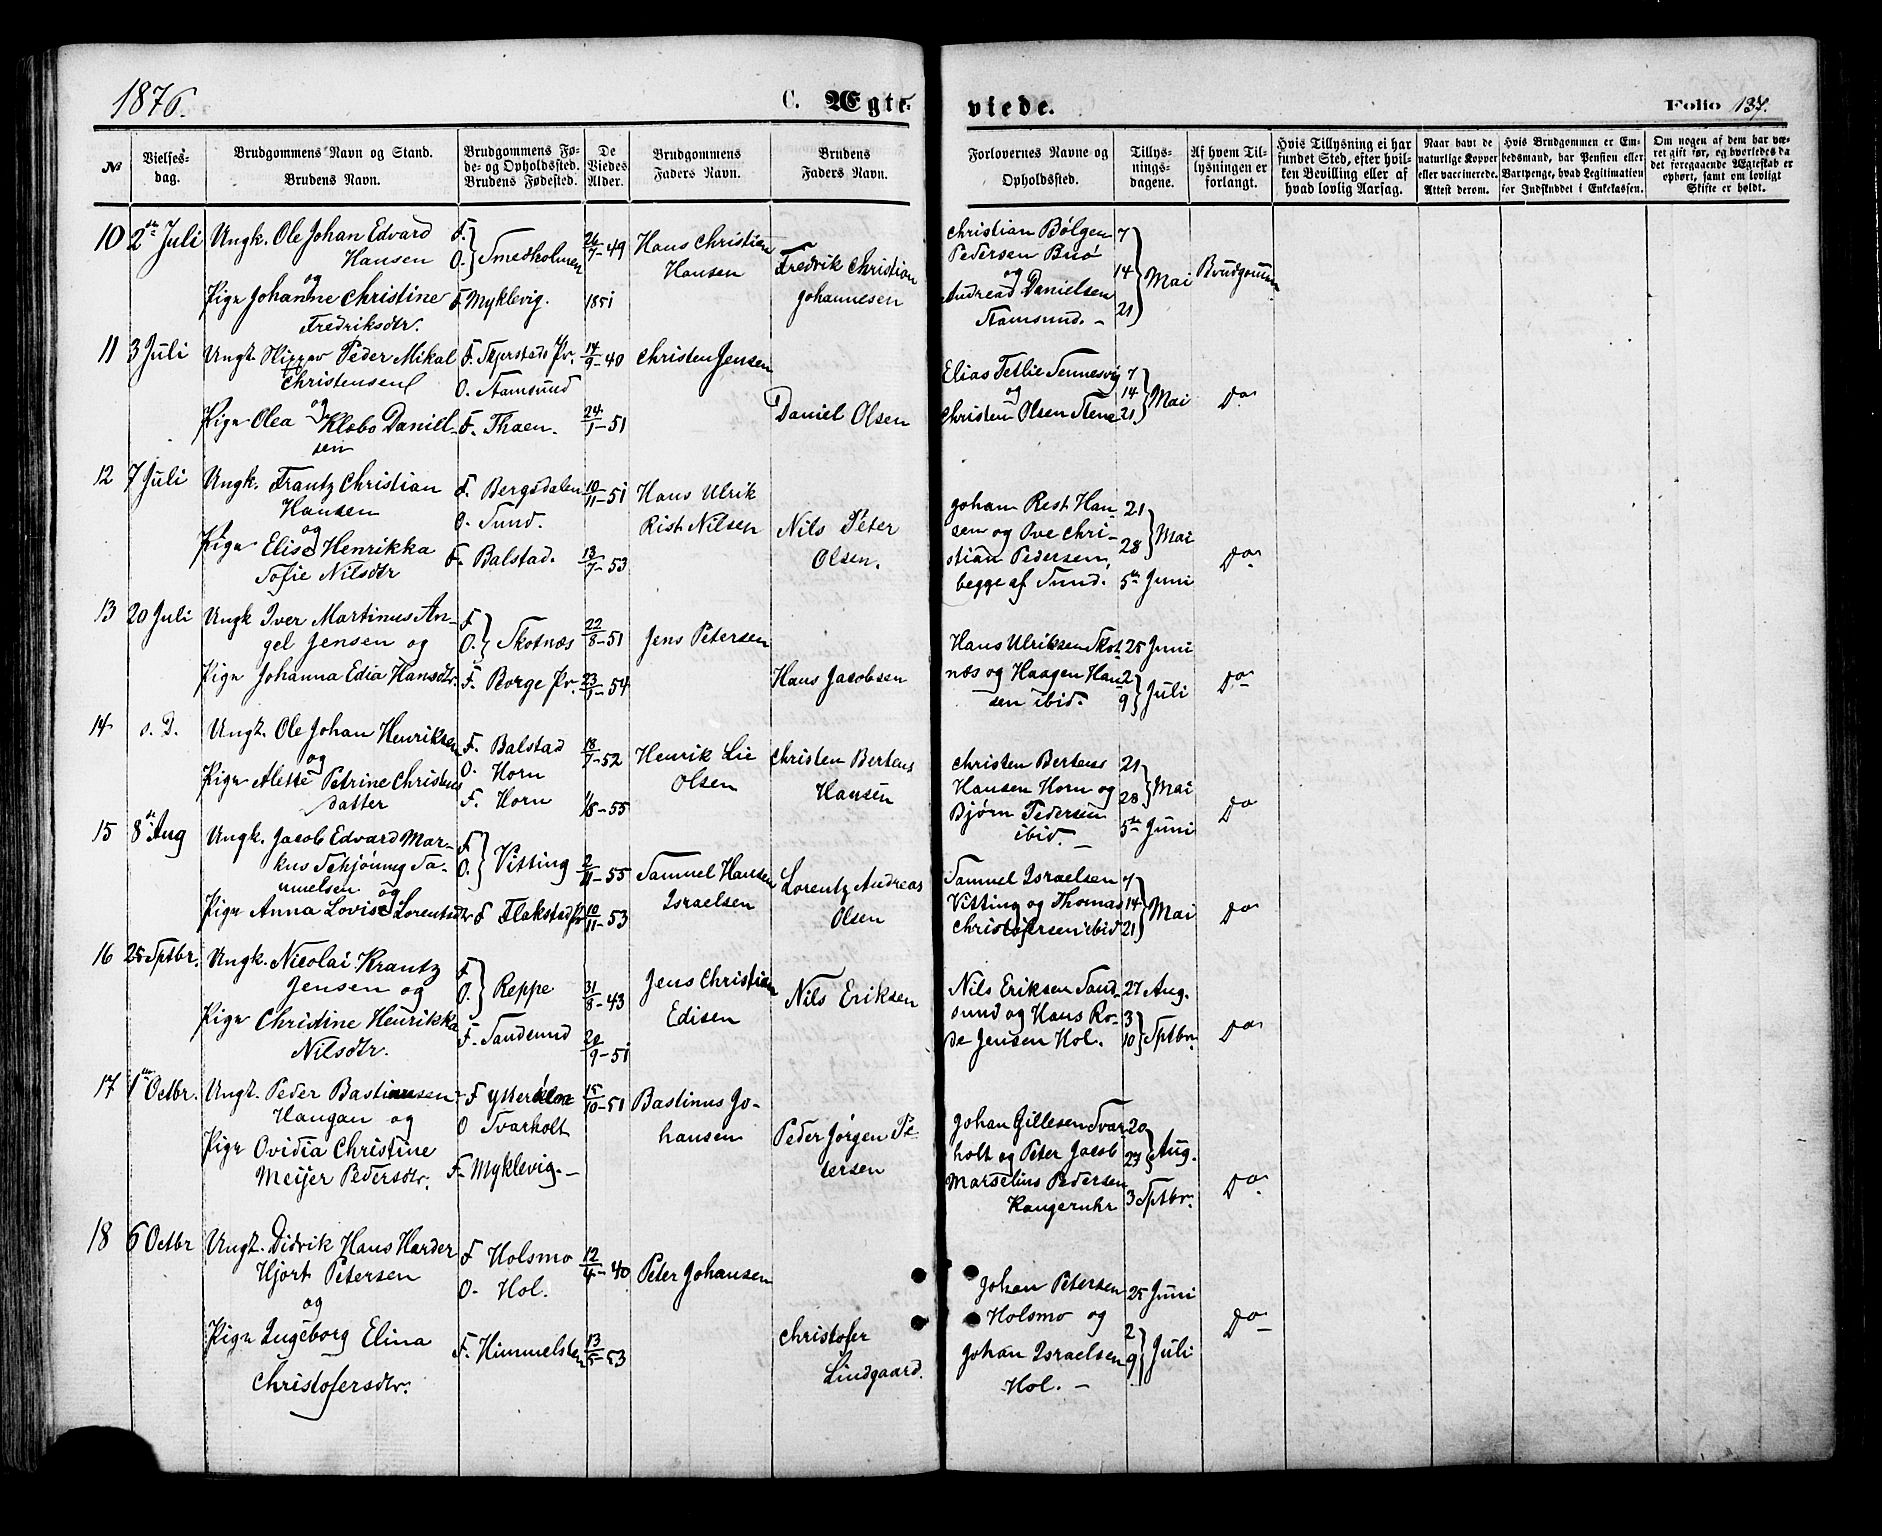 1876.
C. Ægte-
viede.
Folio 137.
№
Vielses-
dag.
Brudgommens Navn og Stand.
Brudens Navn.
Brudgommens Fø-
de- og Opholdssted.
Brudens Fødested.
De
Viedes
Alder.
Brudgommens
Faders Navn.
Brudens
Faders Navn.
Forlovernes Navne og
Opholdssted.
Tillys-
nings-
dagene.
Af hvem Til-
lysningen er
forlangt.
Hvis Tillysning ei har
fundet Sted, efter hvil-
ken Bevilling eller af
hvad lovlig Aarsag.
Naar havt de
naturlige Kopper
eller vaccinerede.
Attest derom.
Hvis Brudgommen er Em-
bedsmand, har Pension eller
Vartpenge, hvad Legitimation
for Indskuddet i Enkekassen.
Om nogen af dem har væ-
ret gift før, og hvorledes da
det foregaaende Ægteskab er
ophørt, samt om lovligt
Skifte er holdt.
10
2den Juli
Ungk. Ole Johan Edvard
Hansen
og
Pige Johanne Christine
Fredriksdtr.
F.
O. } Smedholmen
F. Myklevig.
26/7-49
1851
Hans Christian
Hansen
Fredrik Christian
Johannesen
Christian Bølgen
Pedersen Buø
og
Andreas Danielsen
Stamsund. -
7
14 } Mai
21
Brudgommen
11
3 Juli
Ungk. Peder Mikal
Christensen
og
Pige Olea Klæbo Daniel-
sen
F. Skjerstads Pr.
O. Stamsund
F. Thaen.
14/9-40
24/1-51
Christen Jensen
Daniel Olsen
Elias Tetlie Sennesvig
og
Christen Olsen Stene
7
14 } Mai
21
Do
12
7 Juli
Ungk. Frantz Christian
Hansen
og
Pige Elise Henrikka
Sofie Nilsdtr
F. Bergsdalen
O. Sund.
F. Balstad.
10/11-51
13/7-53
Hans Ulrik
Rist Nilsen
Nils Peter
Olsen.
Johan Rest Han-
sen og Ove Chri-
stian Pedersen,
begge af Sund.
21
28 } Mai
5te Juni
Do
13
20 Juli
Ungk Iver Martinus An-
gel Jensen og
Pige Johanna Edia Hansdtr.
F.
O. } Skotnæs
F. Borge Pr.
22/8-51
23/1-54
Jens Petersen
Hans Jacobsen
Hans Ulriksen Skot-
næs og Haagen Han-
sen ibid.
25 Juni
2
9 } Juli
Do
14
s. D.
Ungk. Ole Johan Henriksen
og
Pige Alette Petrine Christens
datter
F. Balstad
O. Horn
F. Horn
18/7-52
1/8-55
Henrik Lie
Olsen
Christen Bertens
Hansen
Christen Bertens
Hansen Horn og
Bjørn Pedersen
ibid. -
21
28 } Mai
5te Juni
Do
15
8de Aug
Ungk. Jacob Edvard Mar-
kus Schjønning Sa-
muelsen og
Pige Anna Lovise Lorentsdtr
F
O. } Vitting
F Flakstad Pr
2/11-55
10/11-53
Samuel Hansen
Israelsen
Lorentz Andreas
Olsen
Samuel Israelsen
Vitting og Thomas
Christofersen ibid
7
14 } Mai
21
Do
16
25 Sptbr.
Ungk. Nicolai Krantz
Jensen og
Pige Christine Henrikka
Nilsdtr.
F
O. } Reppe
F. Sandsund
31/8-43
20/9-51
Jens Christian
Edisen
Nils Eriksen
Nils Eriksen Sand-
sund og Hans Ro-
de Jensen Hol.
27 Aug.
3
10 } Sptbr.
Do
17
1ste Octbr.
Ungk. Peder Bastinusen
Haugan og
Pige Ovidia Christine
Meijer Pedersdtr.
F
O Svarholt
F. Myklevig. -
15/10-51
Bastinus Jo-
hansen
Peder Jørgen Pe-
tersen
Johan Gillesen Svar-
holt og Peter Jacob
Marselius Pedersen
20
27 } Aug.
3 Sptbr.
Do
18
6 Octbr
Ungk. Didrik Hans Harder
Hjort Petersen
og
Pige Ingeborg Elina
Christofersdtr.
F Holsmo
O. Hol.
F. Himmelsten
12/4-40
13/5-53
Peter Johansen
Christofer
Lindgaard.
Johan Petersen
Holsmo og
Johan Israelsen
Hol. -
25 Juni
2
9 } Juli
Do